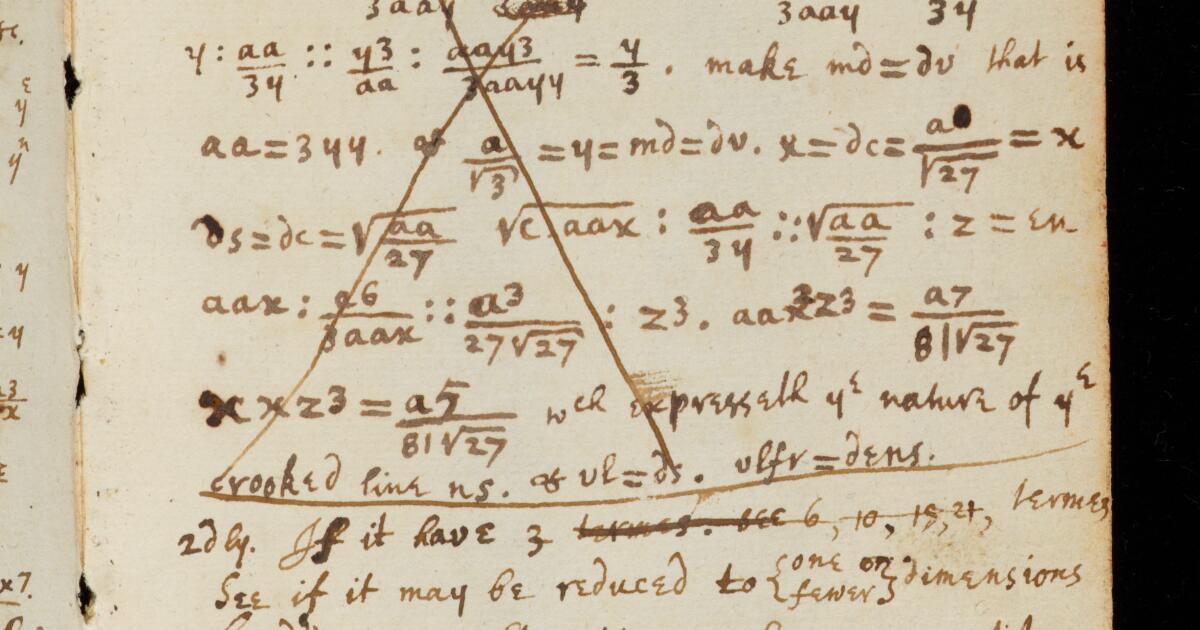 3aay 3aay 3y
y : aa/3y :: y3/aa : aay3/3aayy = y/3 . make md=dv that is
aa=3yy. & a/√3 =y=md=dv. x=dc= a/√27 = x
ds=dc=√aa/27 √c aax : aa/3y :: √aa/27 : z = en
aax : a6/3aax :: a3/27√27 : z3. aax3z3 = a7/81√27
xxz3 = a5/81√27 wch expresseth yE nature of yE
crooked line ns. & vl=ds. vlfr=dens.
2dly. If it have 3 termes. See 6, 10, 15, 21, termes
See if it may be reduced to {one or fewer} dimensions